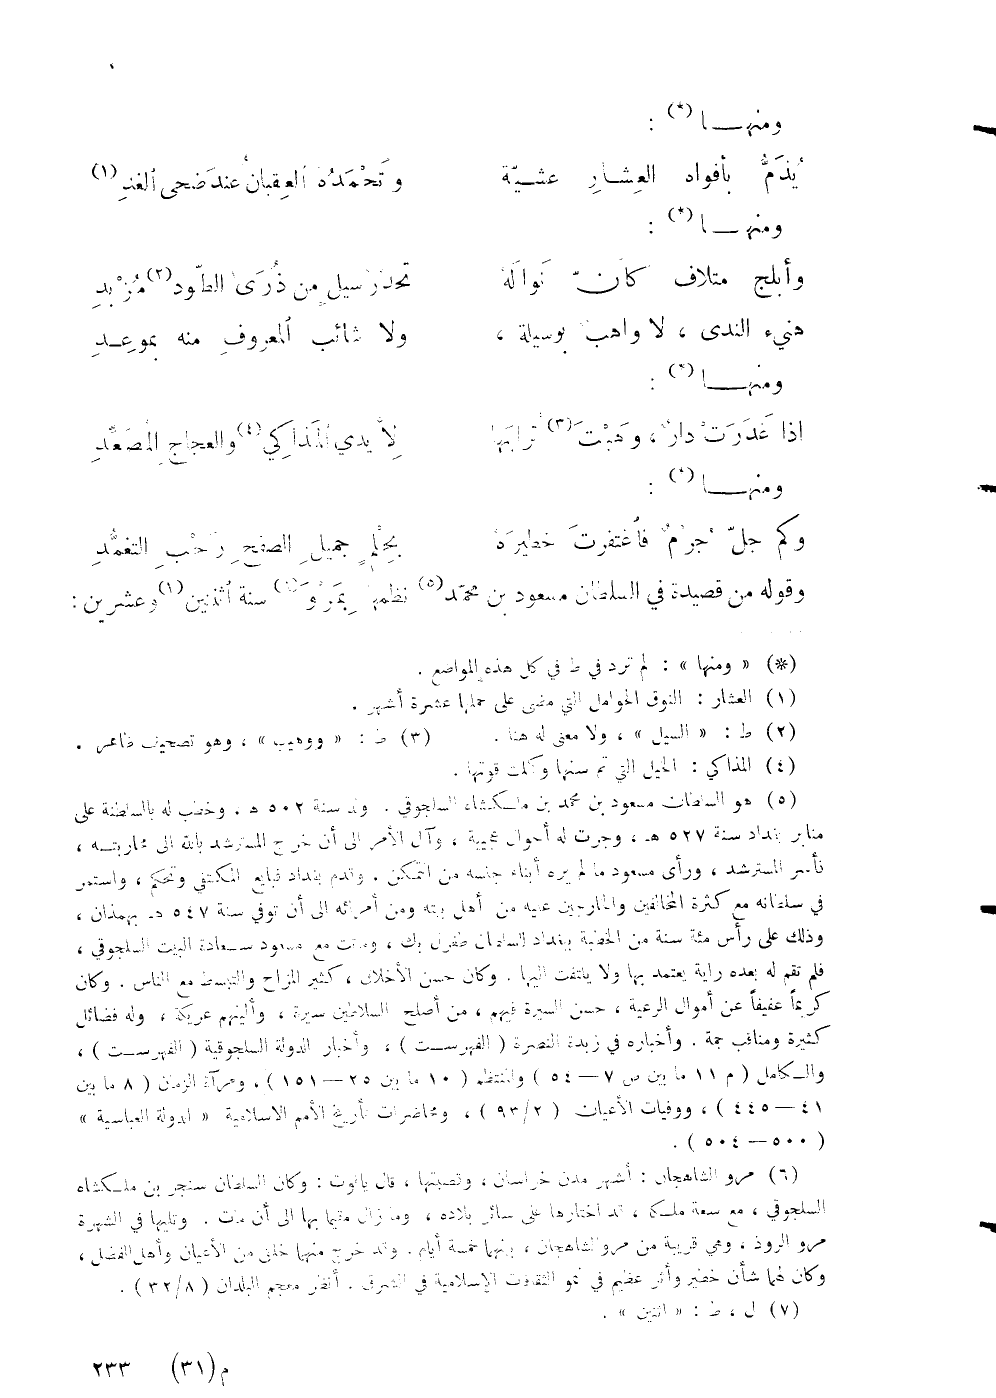 ومنهـــا (*) :
يُذَمُّ بأفواه العِشـار عشـيّة وتَحْمَدُهُ العِقبانُ عندَ ضحى الغدِ (١)
ومنهـــا (*) :
وأبلج متلاف كأنّ نَوالَهُ تحدّرُ سيلٍ من ذُرَى الطّود (٢) مُزْبدِ
هنيء الندى ، لا واهب بوسيلة ، ولا شائب المعروفِ منه بموعِـدِ
ومنهـــا (*) :
اذا غَدَرَتْ دارٌ ، وَهَبْتَ (٣) تُرابَها لأيدي المَذاكي (٤) والعجاجِ المُصَعَّدِ
ومنهـــا (*) :
وكم جلّ جُرْمٌ فأغتفرتَ خطيرَهُ بحِلْمٍ جميلِ الصفحِ رَحْبِ التغمُّدِ
وقوله من قصيدة في السلطان مسعود بن محمّد (٥) نظمها بِمَرْوَ (٦) سنة أثنتين (٧) وعشرين :
(*) « ومنها » : لم ترد في ط في كل هذه المواضع .
(١) العشار : النوق الحوامل التي مضى على حملها عشرة أشهر .
(٢) ط : « السيل » ، ولا معنى له هنا . (٣) ط : « ووهيب » ، وهو تصحيف ظاهر .
(٤) المذاكي : الخيل التي تم سنها وكملت قوتها .
(٥) هو السلطان مسعود بن محمد بن ملـكشاه السلجوقي . ولد سنة ٥٠٢ هـ . وخطب له بالسلطنة على
منابر بغداد سنة ٥٢٧ هـ ، وجرت له أحوال عجيبة ، وآل الأمر الى أن خرج المسترشد بالله الى محاربتـه ،
فأسر المسترشد ، ورأى مسعود ما لم يره أبناء جنسه من التمكن . وقدم بغداد فبايع المكتفي وتحكم ، واستمر
في سلطانه مع كثرة المخالفين والخارجين عليه من أهل بيته ومن أمرائه الى أن توفي سنة ٥٤٧ هـ بهمذان ،
وذلك على رأس مئة سنة من الخطبة ببغداد للسلطان طغرل بك ، وماتت مع مسعود سـعادة البيت السلجوقي ،
فلم تقم له بعده راية يعتمد بها ولا يلتفت اليها . وكان حسن الأخلاق ، كثير المزاح والتبسط مع الناس . وكان
كريماً عفيفاً عن أموال الرعية ، حسن السيرة فيهم ، من أصلح السلاطين سيرة ، وألينهم عريكة ، وله فضائل
كثيرة ومناقب جمة . وأخباره في زبدة النصرة ( الفهرسـت ) ، وأخبار الدولة السلجوقية ( الفهرسـت ) ،
والـكامل ( م ١١ ما بين س ٧—٥٤ ) والمنتظم ( ١٠ ما بين ٢٥—١٥١ ) ، ومرآة الزمان ( ٨ ما بين
٤١—٤٤٥ ) ، ووفيات الأعيان ( ٩٣/٢ ) ، ومحاضرات تأريخ الأمم الاسلامية « الدولة العباسية »
( ٥٠٠—٥٠٤ ) .
(٦) مرو الشاهجان : أشهر مدن خراسان ، وقصبتها ، قال ياقوت : وكان السلطان سنجر بن ملـكشاه
السلجوقي ، مع سعة ملـكه ، قد اختارها على سائر بلاده ، وما زال مقيما بها الى أن مات . وتليها في الشهرة
مرو الروذ ، وهي قريبة من مرو الشاهجان ، بينهما خمسة أيام . وقد خرج منهما خلق من الأعيان وأهل الفضل ،
وكان لهما شأن خطير وأثر عظيم في نمو الثقافات الإسلامية في الشرق . أنظر معجم البلدان ( ٣٢/٨ ) .
(٧) ل ، ط : « اثنين » .
م (٣١) ٢٣٣